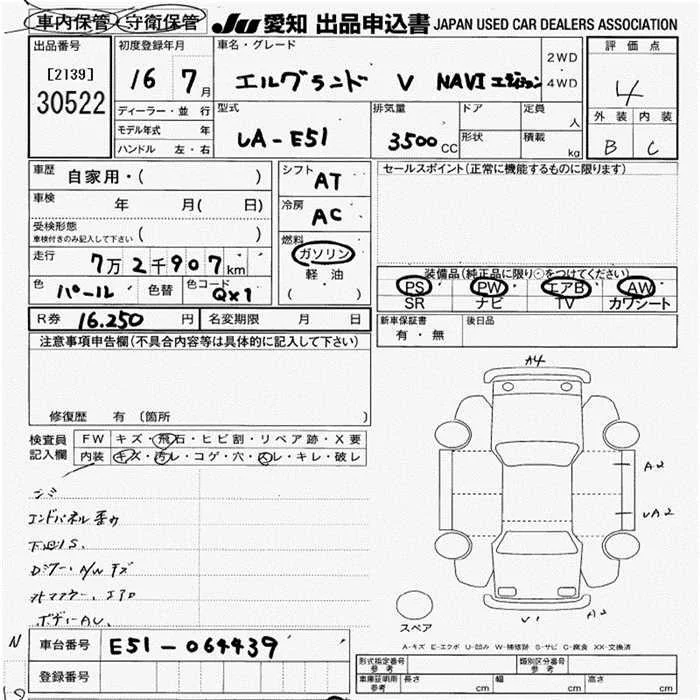 車内保管 守衛保管 JU 愛知 出品申込書 JAPAN USED CAR DEALERS ASSOCIATION
出品番号 初度登録年月 車名・グレード 評価点
[2139] 16 7月 エルグランド V NAVIエディション 2WD 4WD 4
30522
ディーラー・並行 型式 排気量 ドア 定員 人 外装 内装
モデル年式 年 UA-E51 3500CC 形状 積載 kg B C
ハンドル 左・右
車歴 自家用・( ) シフト AT セールスポイント(正常に機能するものに限ります)
車検 年 月( 日) 冷房 AC
受検形態
車検付きのみ記入して下さい ( ) 燃料
走行 7万2千907km ガソリン
軽油
( )
色 パール 色替 色コード QX1
装備品(純正品に限り○をつけてください)
PS PW エアB AW
SR ナビ TV カワシート
R券 16.250円 名変期限 月 日 新車保証書 有・無 後日品
注意事項申告欄(不具合内容等は具体的に記入して下さい)
修復歴 有 (箇所 )
検査員記入欄 FW キズ・飛石・ヒビ割・リペア跡・X要
内装 キズ・汚レ・コゲ・穴・スレ・キレ・破レ
シミ
エンドパネル歪ム
下廻りS.
ボディーAU.
A4
A2
UA2
V1 A2
スペア
A-キズ E-エクボ U-凹み W-補修跡 S-サビ C-腐食 XX-交換済
N 車台番号 E51-064439
登録番号
型式指定番号 参考 類別区分番号 参考
車庫証明用 参考 長さ cm 幅 cm 高さ cm